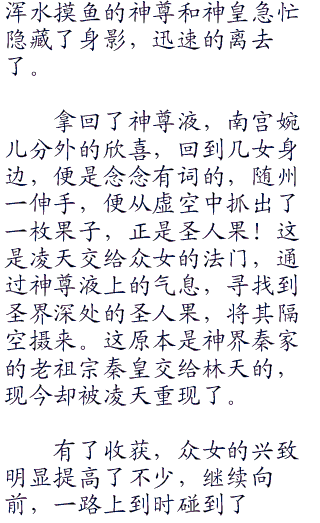 浑水摸鱼的神尊和神皇急忙
隐藏了身影，迅速的离去
了。
拿回了神尊液，南宫婉
儿分外的欣喜，回到几女身
边，便是念念有词的，随州
一伸手，便从虚空中抓出了
一枚果子，正是圣人果！这
是凌天交给众女的法门，通
过神尊液上的气息，寻找到
圣界深处的圣人果，将其隔
空摄来。这原本是神界秦家
的老祖宗秦皇交给林天的，
现今却被凌天重现了。
有了收获，众女的兴致
明显提高了不少，继续向
前，一路上到时碰到了